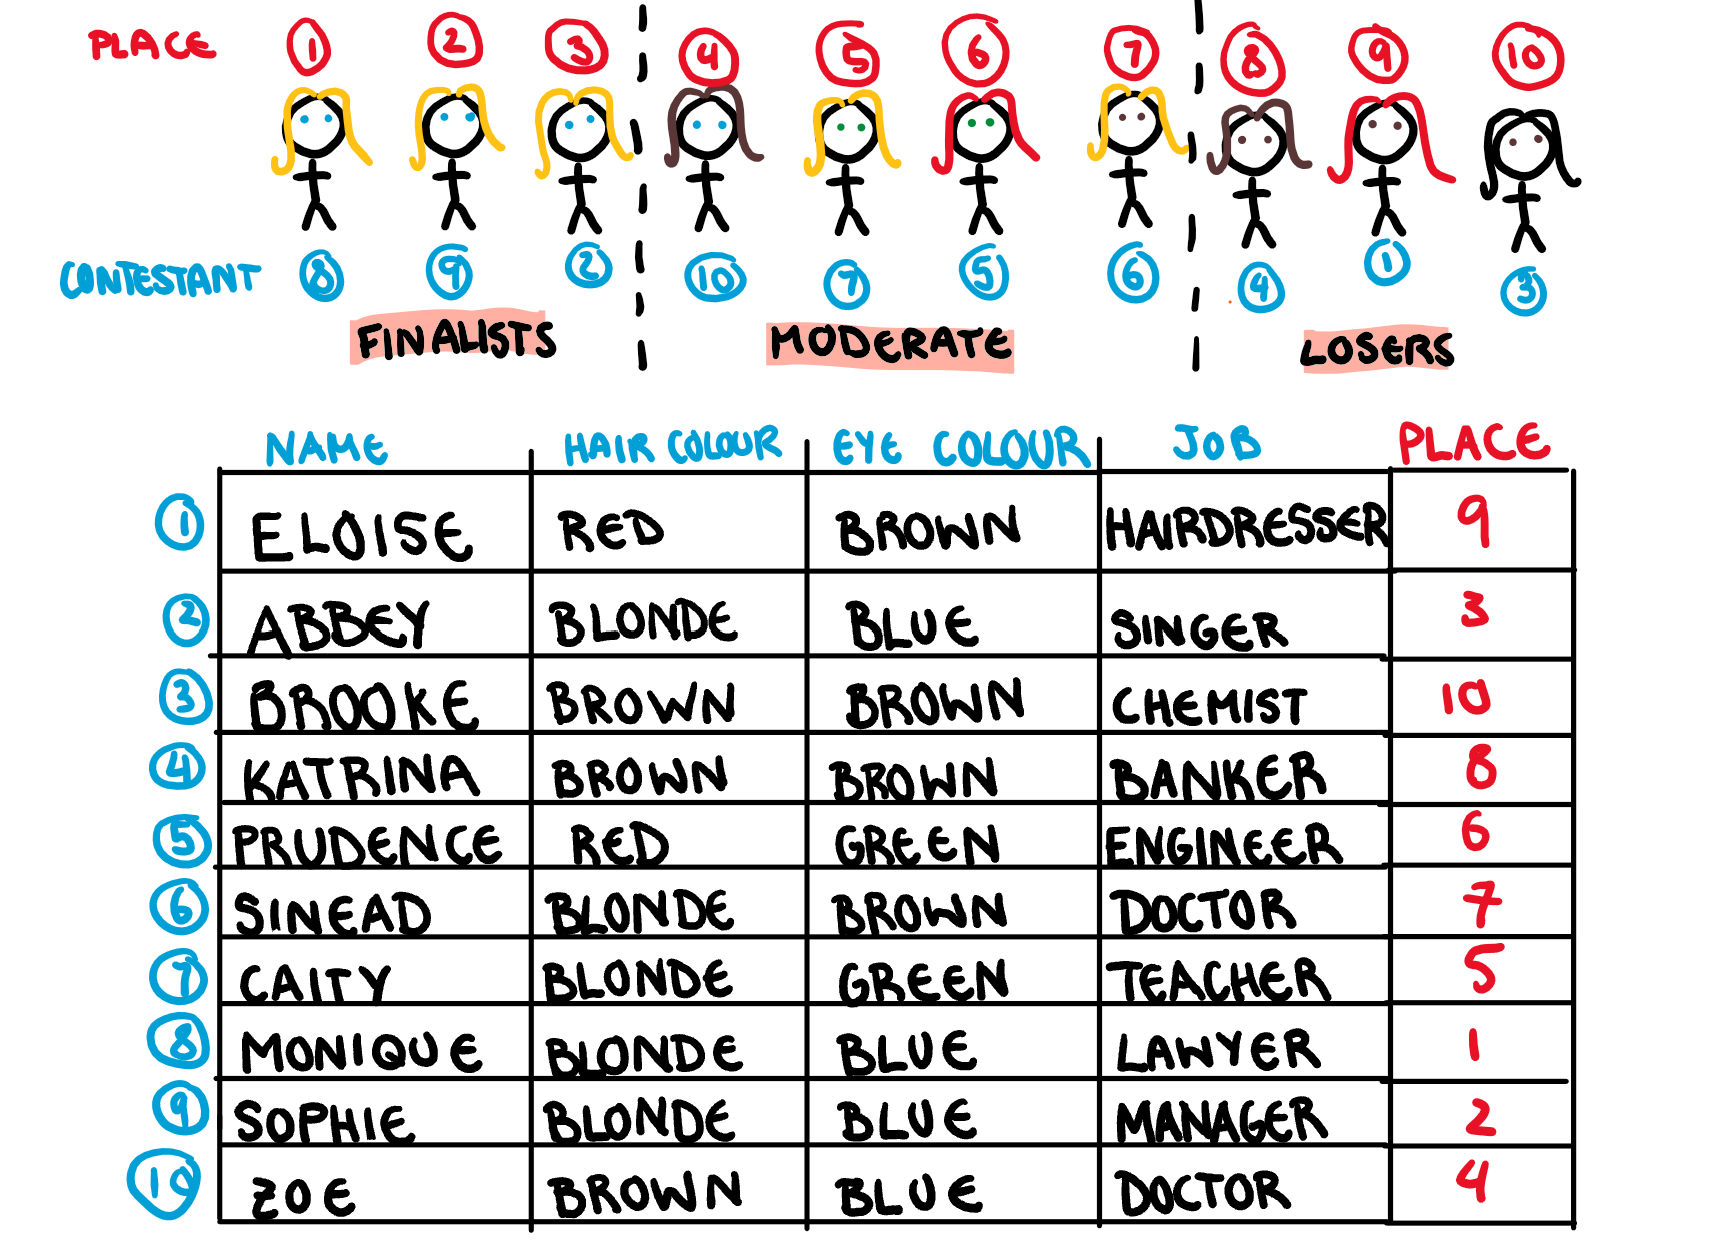 PLACE 1 2 3 4 5 6 7 8 9 10
CONTESTANT 8 9 2 10 7 5 6 4 1 3
FINALISTS MODERATE LOSERS
NAME HAIR COLOUR EYE COLOUR JOB PLACE
1 ELOISE RED BROWN HAIRDRESSER 9
2 ABBEY BLONDE BLUE SINGER 3
3 BROOKE BROWN BROWN CHEMIST 10
4 KATRINA BROWN BROWN BANKER 8
5 PRUDENCE RED GREEN ENGINEER 6
6 SINEAD BLONDE BROWN DOCTOR 7
7 CAITY BLONDE GREEN TEACHER 5
8 MONIQUE BLONDE BLUE LAWYER 1
9 SOPHIE BLONDE BLUE MANAGER 2
10 ZOE BROWN BLUE DOCTOR 4